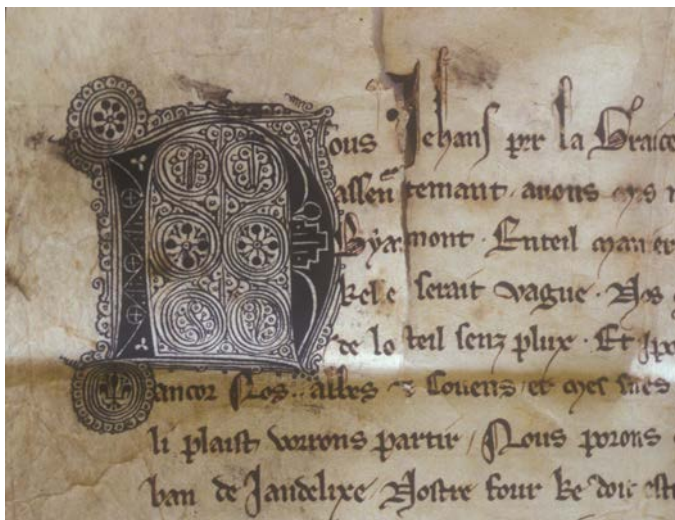 Nous Jehans par la Graice
assentemant. auons mis
Byarmont. Enteil manier
kele serait vague. Nos
de lo teil senz plux. Et
ancor Nos abbes Couens et
li plaist vorrons partir / Nous porons
ban de Jandelixe. Nostre four ke doit estr